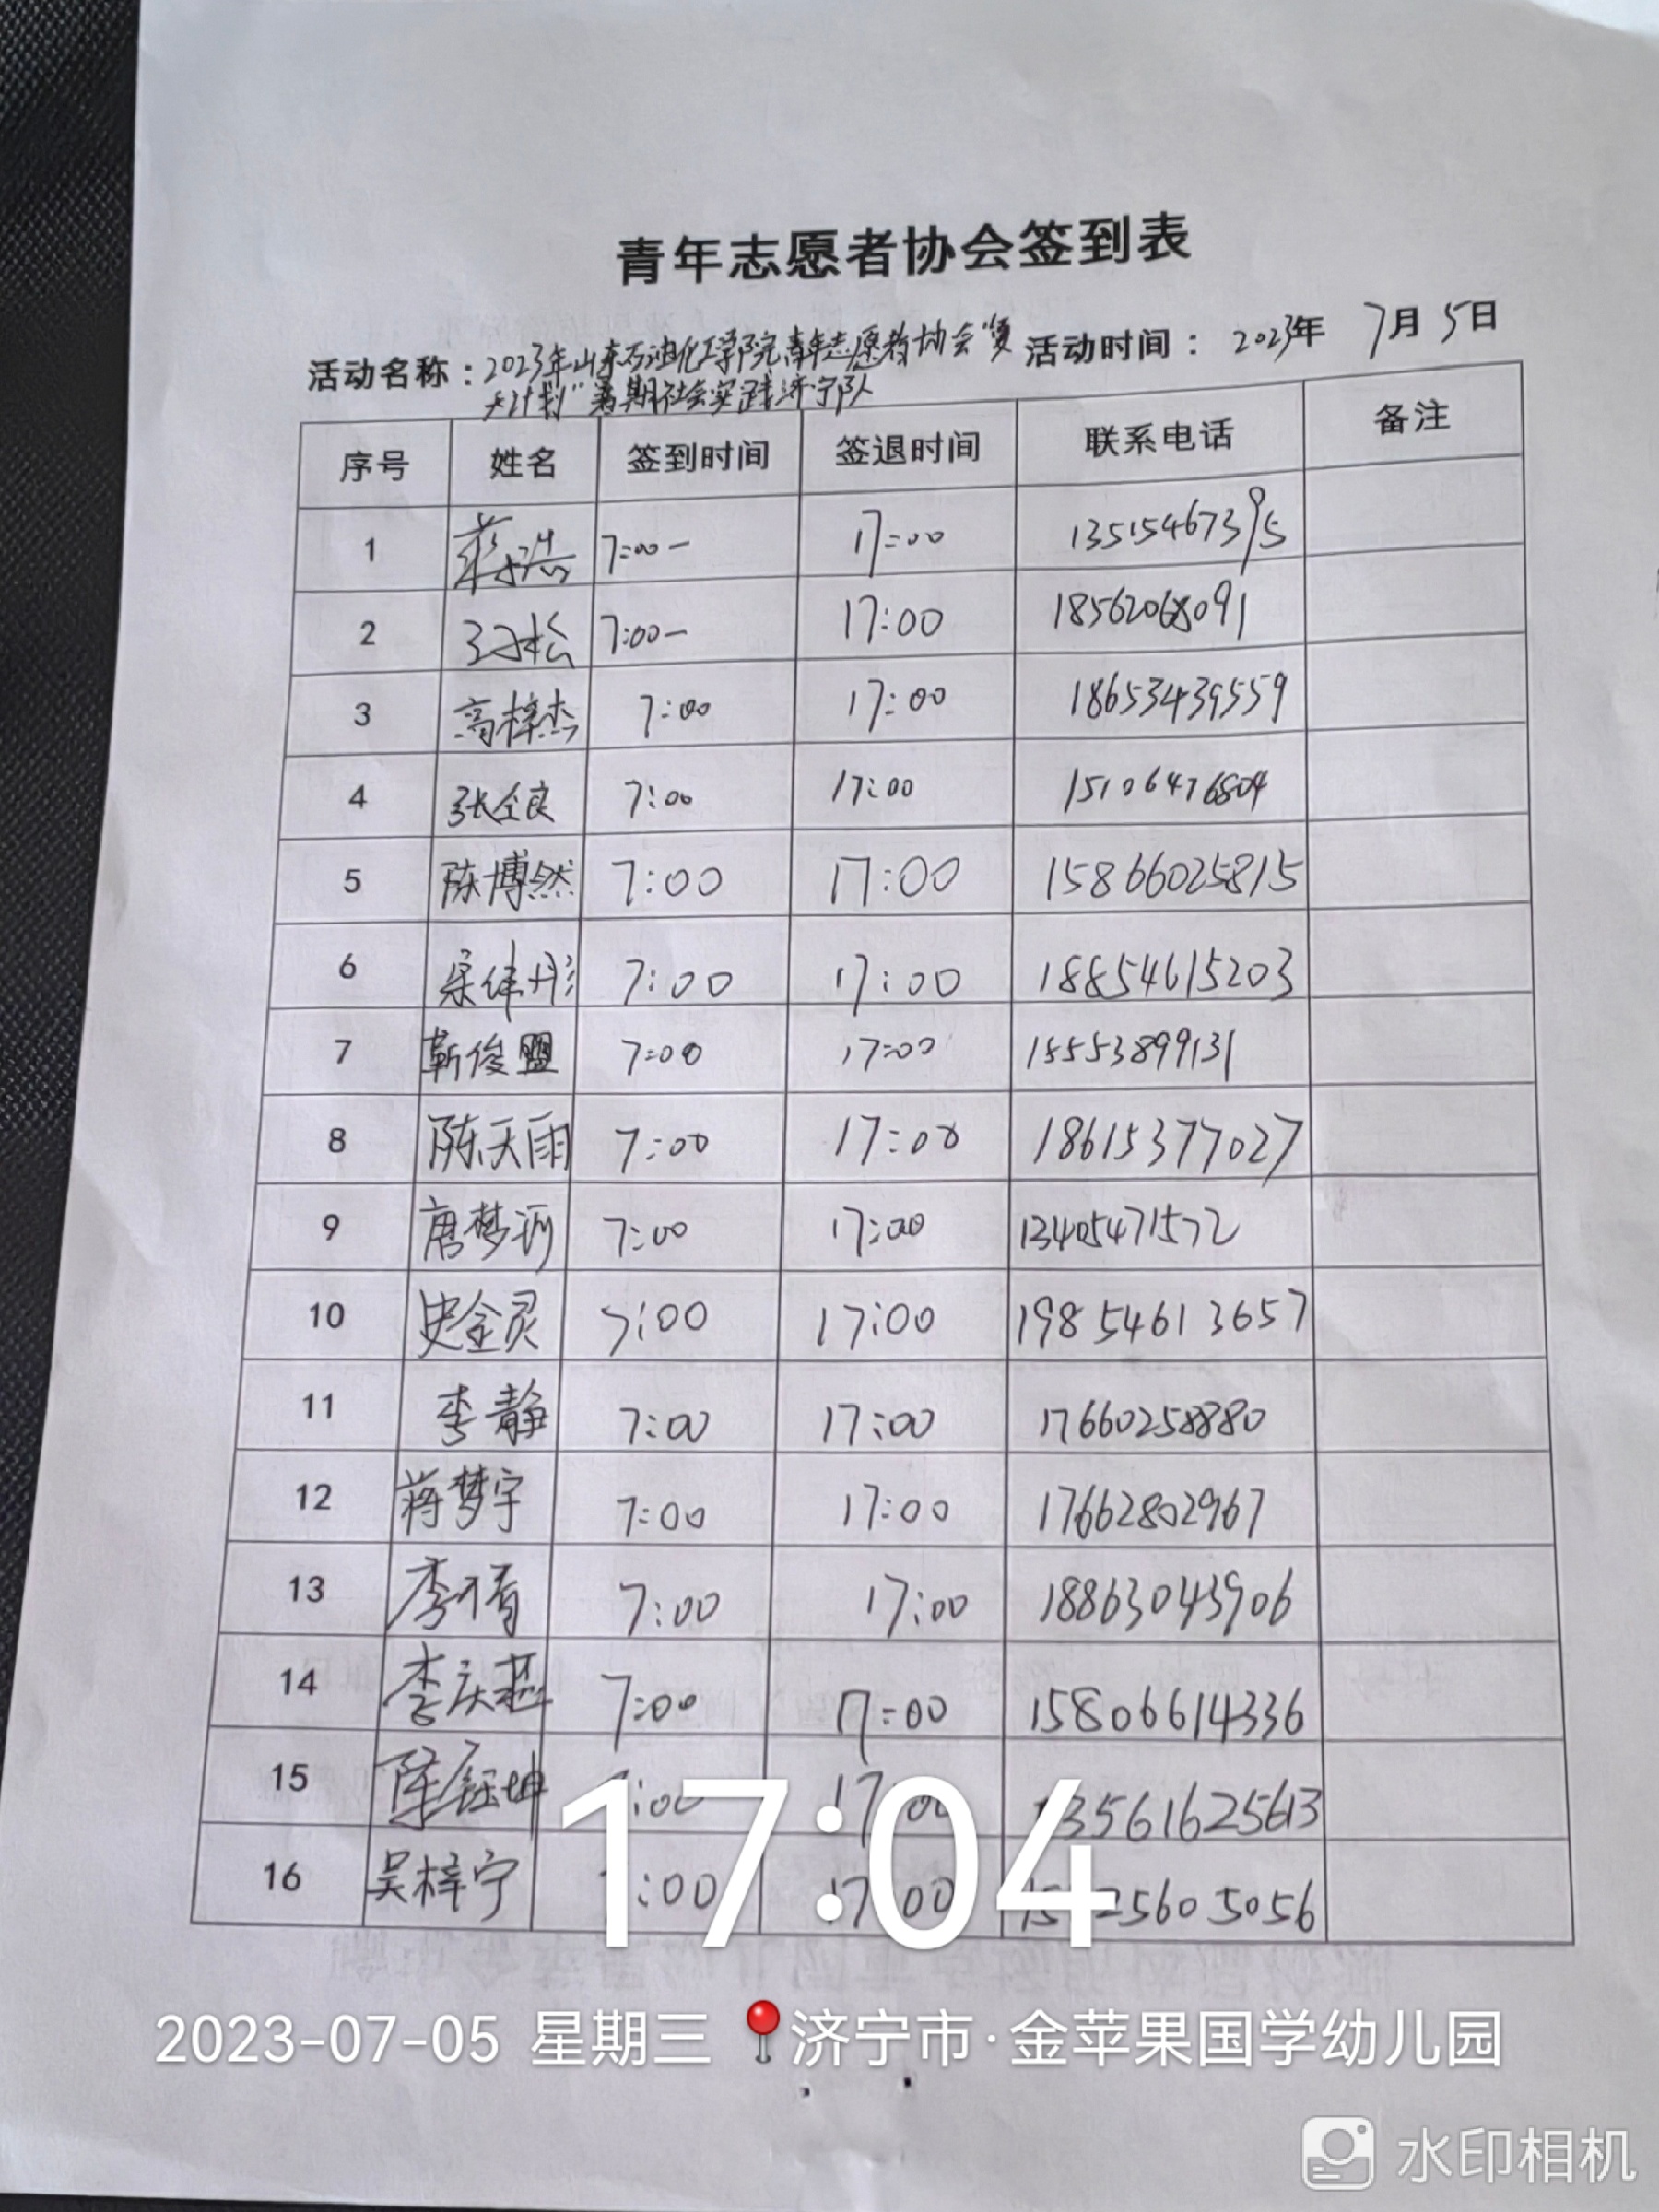 青年志愿者协会签到表
活动名称：2023年山东石油化工学院青年志愿者协会" 活动时间：2023年 7月 5日
计划"暑期社会实践济宁队
序号 姓名 签到时间 签退时间 联系电话 备注
1 7:00- 17:00 13515467395
2 7:00- 17:00 18562068091
3 高梓杰 7:00 17:00 18653439559
4 张全良 7:00 17:00 15106476804
5 陈博然 7:00 17:00 15866025815
6 7:00 17:00 18854615203
7 靳俊盟 7:00 17:00 15553899131
8 陈天雨 7:00 17:00 18615377027
9 唐梦 7:00 17:00 13405471572
10 史金灵 7:00 17:00 19854613657
11 李静 7:00 17:00 17660258880
12 蒋梦宇 7:00 17:00 17662802967
13 李 7:00 17:00 18863043906
14 李庆 7:00 17:00 15806614336
15 :00 17 00 13561625613
16 吴梓宁 :00 17 00 2560 5056
17:04
2023-07-05 星期三 济宁市·金苹果国学幼儿园
水印相机